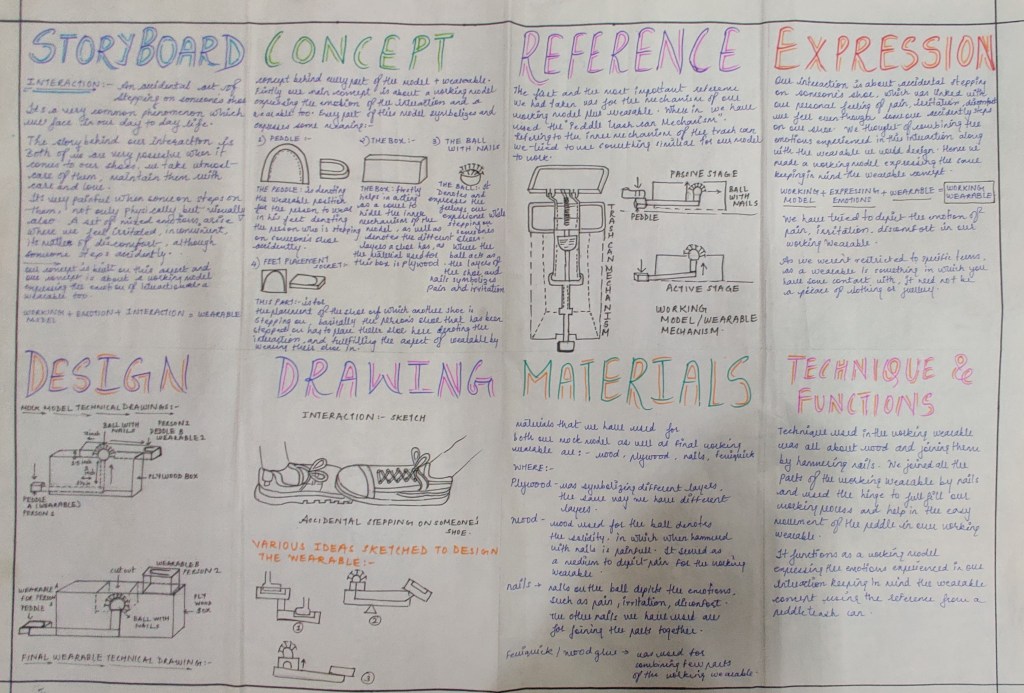 STORYBOARD
INTERACTION:- An accidental act of
stepping on someone's shoe
It's a very common phenomenon which
we face in our day to day life.
The story behind our interaction is
Both of us are very possessive when it
comes to our shoes. we take utmost
care of them, maintain them with
care and love.
It's very painful when someone steps on
them, not only physically but visually
also. A set of mixed emotions, arise
where we feel irritated, inconvenient,
its matter of discomfort, although
someone steps accidently.
our concept is built on this aspect and
our concept is about a working model
expressing the emotion of situation
wearable too.
WORKING + EMOTION + INTERACTION = WEARABLE
MODEL
CONCEPT
concept behind every part of the model + wearable.
Firstly our main concept is about a working model
expressing the emotion of the interaction and a
wearable too. Every part of this model symbolizes and
expresses some meaning:-
1) PEDDLE:-
2) THE BOX:-
3) THE BALL
WITH NAILS
THE PEDDLE:- is denoting
the wearable position
for the person to wear
in his feet denoting
the person who is stepping
on someone's shoe
accidently.
THE BOX:- firstly
helps in acting
as a cover to
hides the inner
mechanism of the
model, as well as
denotes the different
layers a shoe has, as
the material used for
this box is plywood.
THE BALL:- It
denotes and
expresses the
feelings one
experienced while
stepping on
someones
shoes.
where the
ball act as
the layers of
the shoe and
nails symbolizes
pain and irritation
4) FEET PLACEMENT
SOCKET:-
THIS PART:- is for
the placement of the shoe on which another shoe is
stepping on, basically the person's shoe that has been
stepped on has to place their shoe here denoting the
interaction, and fullfilling the aspect of wearable by
wearing their shoe in.
REFERENCE
The first and the most important reference
we had taken was for the mechanism of our
working model plus wearable. Where in we have
used the "Peddle trash can Mechanism".
Referring to the inner mechanism of the trash can
we tried to use something similar for our model
to work.
TRASH CAN MECHANISM
PASSIVE STAGE
BALL
WITH
NAILS
PEDDLE
ACTIVE STAGE
WORKING
MODEL/WEARABLE
MECHANISM.
EXPRESSION
Our interaction is about accidental stepping
on someone's shoe. Which was linked with
our personal feeling of pain, irritation, discomfort
we feel even though someone accidently steps
on our shoe. We thought of combining our
emotions experienced in this interaction along
with the wearable we will design. Hence we
made a working model expressing the same
keeping in mind the wearable concept.
WORKING + EXPRESSING + WEARABLE = WORKING
MODEL EMOTIONS WEARABLE
We have tried to depict the emotion of
pain, irritation, discomfort in our
working wearable.
As we weren't restricted to specific terms,
as a wearable is something in which you
have some contact with, it need not be
a piece of clothing or jwellery.
DESIGN
MOCK MODEL TECHNICAL DRAWINGS:-
BALL WITH
NAILS
PERSON 2
PEDDLE B
WEARABLE 2
PLYWOOD BOX
PEDDLE
A (WEARABLE)
PERSON 1
WEARABLE A
FOR PERSON 1
PEDDLE
cut out
WEARABLE B
PERSON 2
PLY
WOOD
BOX
BALL WITH
NAILS
FINAL WEARABLE TECHNICAL DRAWING:-
DRAWING
INTERACTION:- SKETCH
ACCIDENTAL STEPPING ON SOMEONE'S
SHOE.
VARIOUS IDEAS SKETCHED TO DESIGN
THE WEARABLE:-
1
2
3
MATERIALS
materials that we have used for
both our mock model as well as final working
wearable are:- wood, plywood, nails, feviquick
WHERE:-
Plywood - was symbolizing different layers,
the same way we have different
layers.
wood - wood used for the ball denotes
the solidity. in which when hammered
with nails is painfull. It served as
a medium to depict pain for the working
wearable.
nails → nails on the ball depicts the emotions,
such as pain, irritation, discomfort.
The other nails we have used are
for joining the parts together.
Feviquick / wood glue → was used for
combining few parts
of the working wearable.
TECHNIQUE &
FUNCTIONS
Technique used in the working wearable
was all about wood and joining them
by hammering nails. We joined all the
parts of the working wearable by nails
and used the hinge to full fill our
working process and help in the easy
movement of the peddle in our working
wearable.
It functions as a working model
expressing the emotions experienced in our
interaction keeping in mind the wearable
concept using the reference from a
peddle trash can.